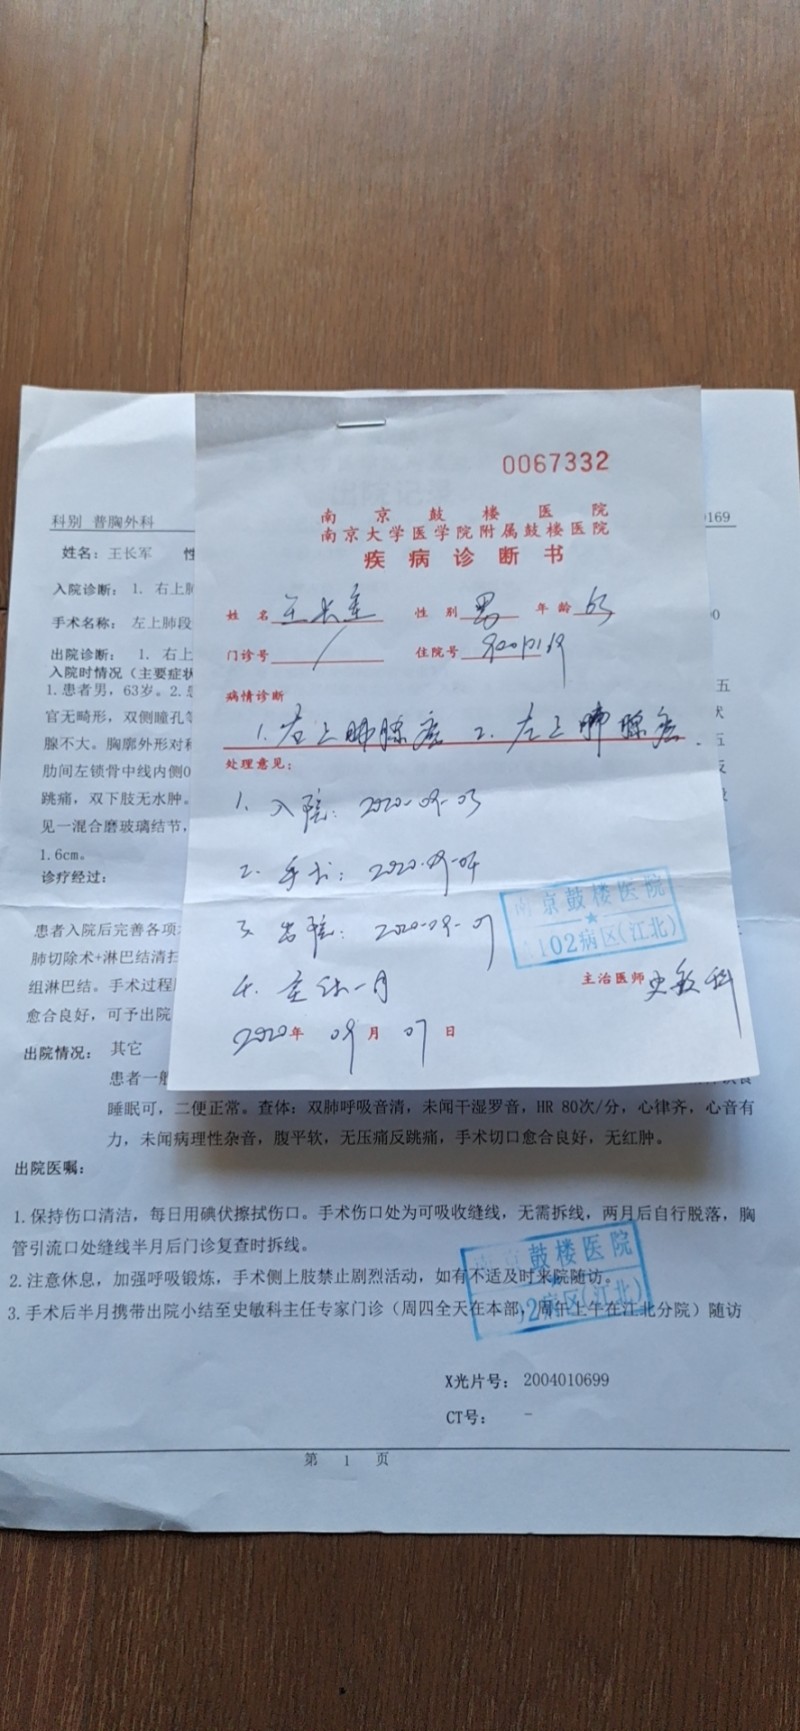 0067332
南京鼓楼医院
南京大学医学院附属鼓楼医院
疾病诊断书
姓名 王长军 性别 男 年龄 63
门诊号 / 住院号
病情诊断
1. 右上肺腺癌 2. 左上肺腺癌
处理意见:
1. 入院: 2020-09-03
2. 手术: 2020-09-04
3. 出院: 2020-09-07
4. 全休一月
南京鼓楼医院
102病区(江北)
主治医师 史敏科
2020年 09月 07日
科别 普胸外科 0169
姓名: 王长军
入院诊断: 1. 右上肺
手术名称: 左上肺段
出院诊断: 1. 右上
入院时情况(主要症状
1.患者男, 63岁。2.
官无畸形, 双侧瞳孔等
腺不大。胸廓外形对称
肋间左锁骨中线内侧0
跳痛, 双下肢无水肿。
见一混合磨玻璃结节,
1.6cm。
诊疗经过:
患者入院后完善各项
肺切除术+淋巴结清扫
组淋巴结。手术过程
愈合良好, 可予出院
出院情况: 其它
患者一般
睡眠可, 二便正常。查体: 双肺呼吸音清, 未闻干湿罗音, HR 80次/分, 心律齐, 心音有
力, 未闻病理性杂音, 腹平软, 无压痛反跳痛, 手术切口愈合良好, 无红肿。
出院医嘱:
1.保持伤口清洁, 每日用碘伏擦拭伤口。手术伤口处为可吸收缝线, 无需拆线, 两月后自行脱落, 胸
管引流口处缝线半月后门诊复查时拆线。
2.注意休息, 加强呼吸锻炼, 手术侧上肢禁止剧烈活动, 如有不适及时来院随访。
3.手术后半月携带出院小结至史敏科主任专家门诊(周四全天在本部, 周午上午在江北分院)随访
南京鼓楼医院
2病区(江北)
X光片号: 2004010699
CT号: -
第 1 页